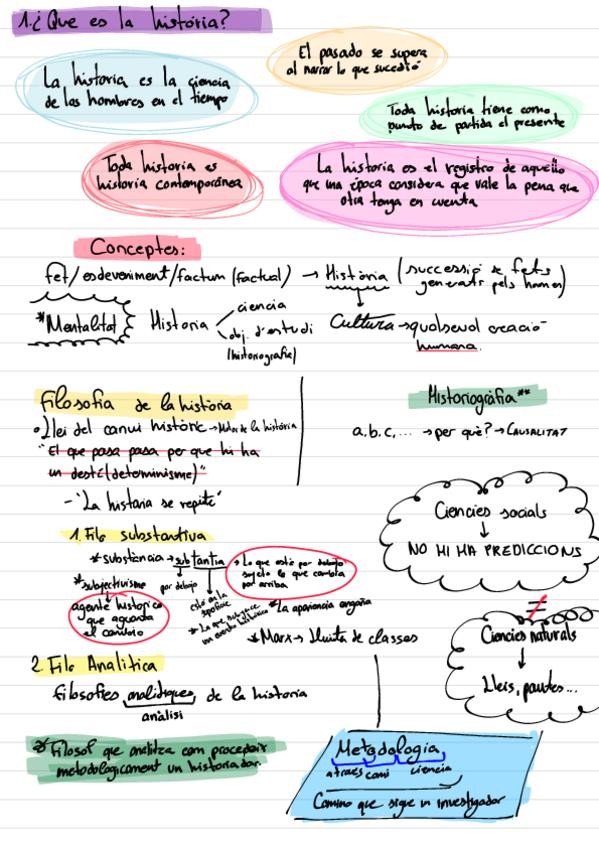 1. ¿Que es la história?
El pasado se supera
al narrar lo que sucedió
La historia es la ciencia
de los hombres en el tiempo
Toda historia tiene como
punto de partida el presente
Toda historia es
historia contemporánea
La historia es el registro de aquello
que una época considera que vale la pena que
otra tenga en cuenta
Conceptes:
fet/esdeveniment/factum (factual) → Història (successió de fets
generats pels homes)
*Mentalitat
Historia
ciencia
obj. d'estudi
(historiografia)
Cultura → qualsevol creació
humana.
Filosofia de la història
Llei del canvi històric → Motor de la història
"El que passa passa per que hi ha
un destí (determinisme)"
- "La historia se repite"
Historiogràfia**
a.b.c,... → per què? → CAUSALITAT
Ciencies socials
↓
NO HI HA PREDICCIONS
≠
Ciencies naturals
↓
Lleis, pautes...
1. Filo substantiva
*substància → substantia
→ Lo que está por debajo
sujeto lo que cambia
por arriba
*subjectivisme
por debajo
agente historico
que aguanta
el cambio
*La apariencia engaña
*Marx → lluita de classes
2. Filo Analitica
filosofies analitiques, de la historia
anàlisi
*Filosof que analitza com procedeix
metodologicament un historiador.
Metodologia
camí ciencia
Camino que sigue un investigador